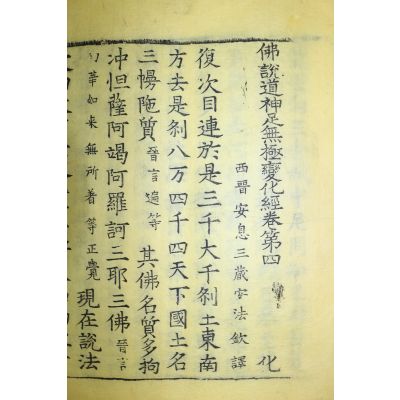 佛說道神足無極變化經卷第四 化
西晉安息三藏安法欽譯
復次目連於是三千大千剎土東南
方去是剎八万四千四天下國土名
三幔陁質晉言遍等其佛名質多拘
冲怛薩阿竭阿羅訶三耶三佛晉言
華如來無所著等正覺現在說法